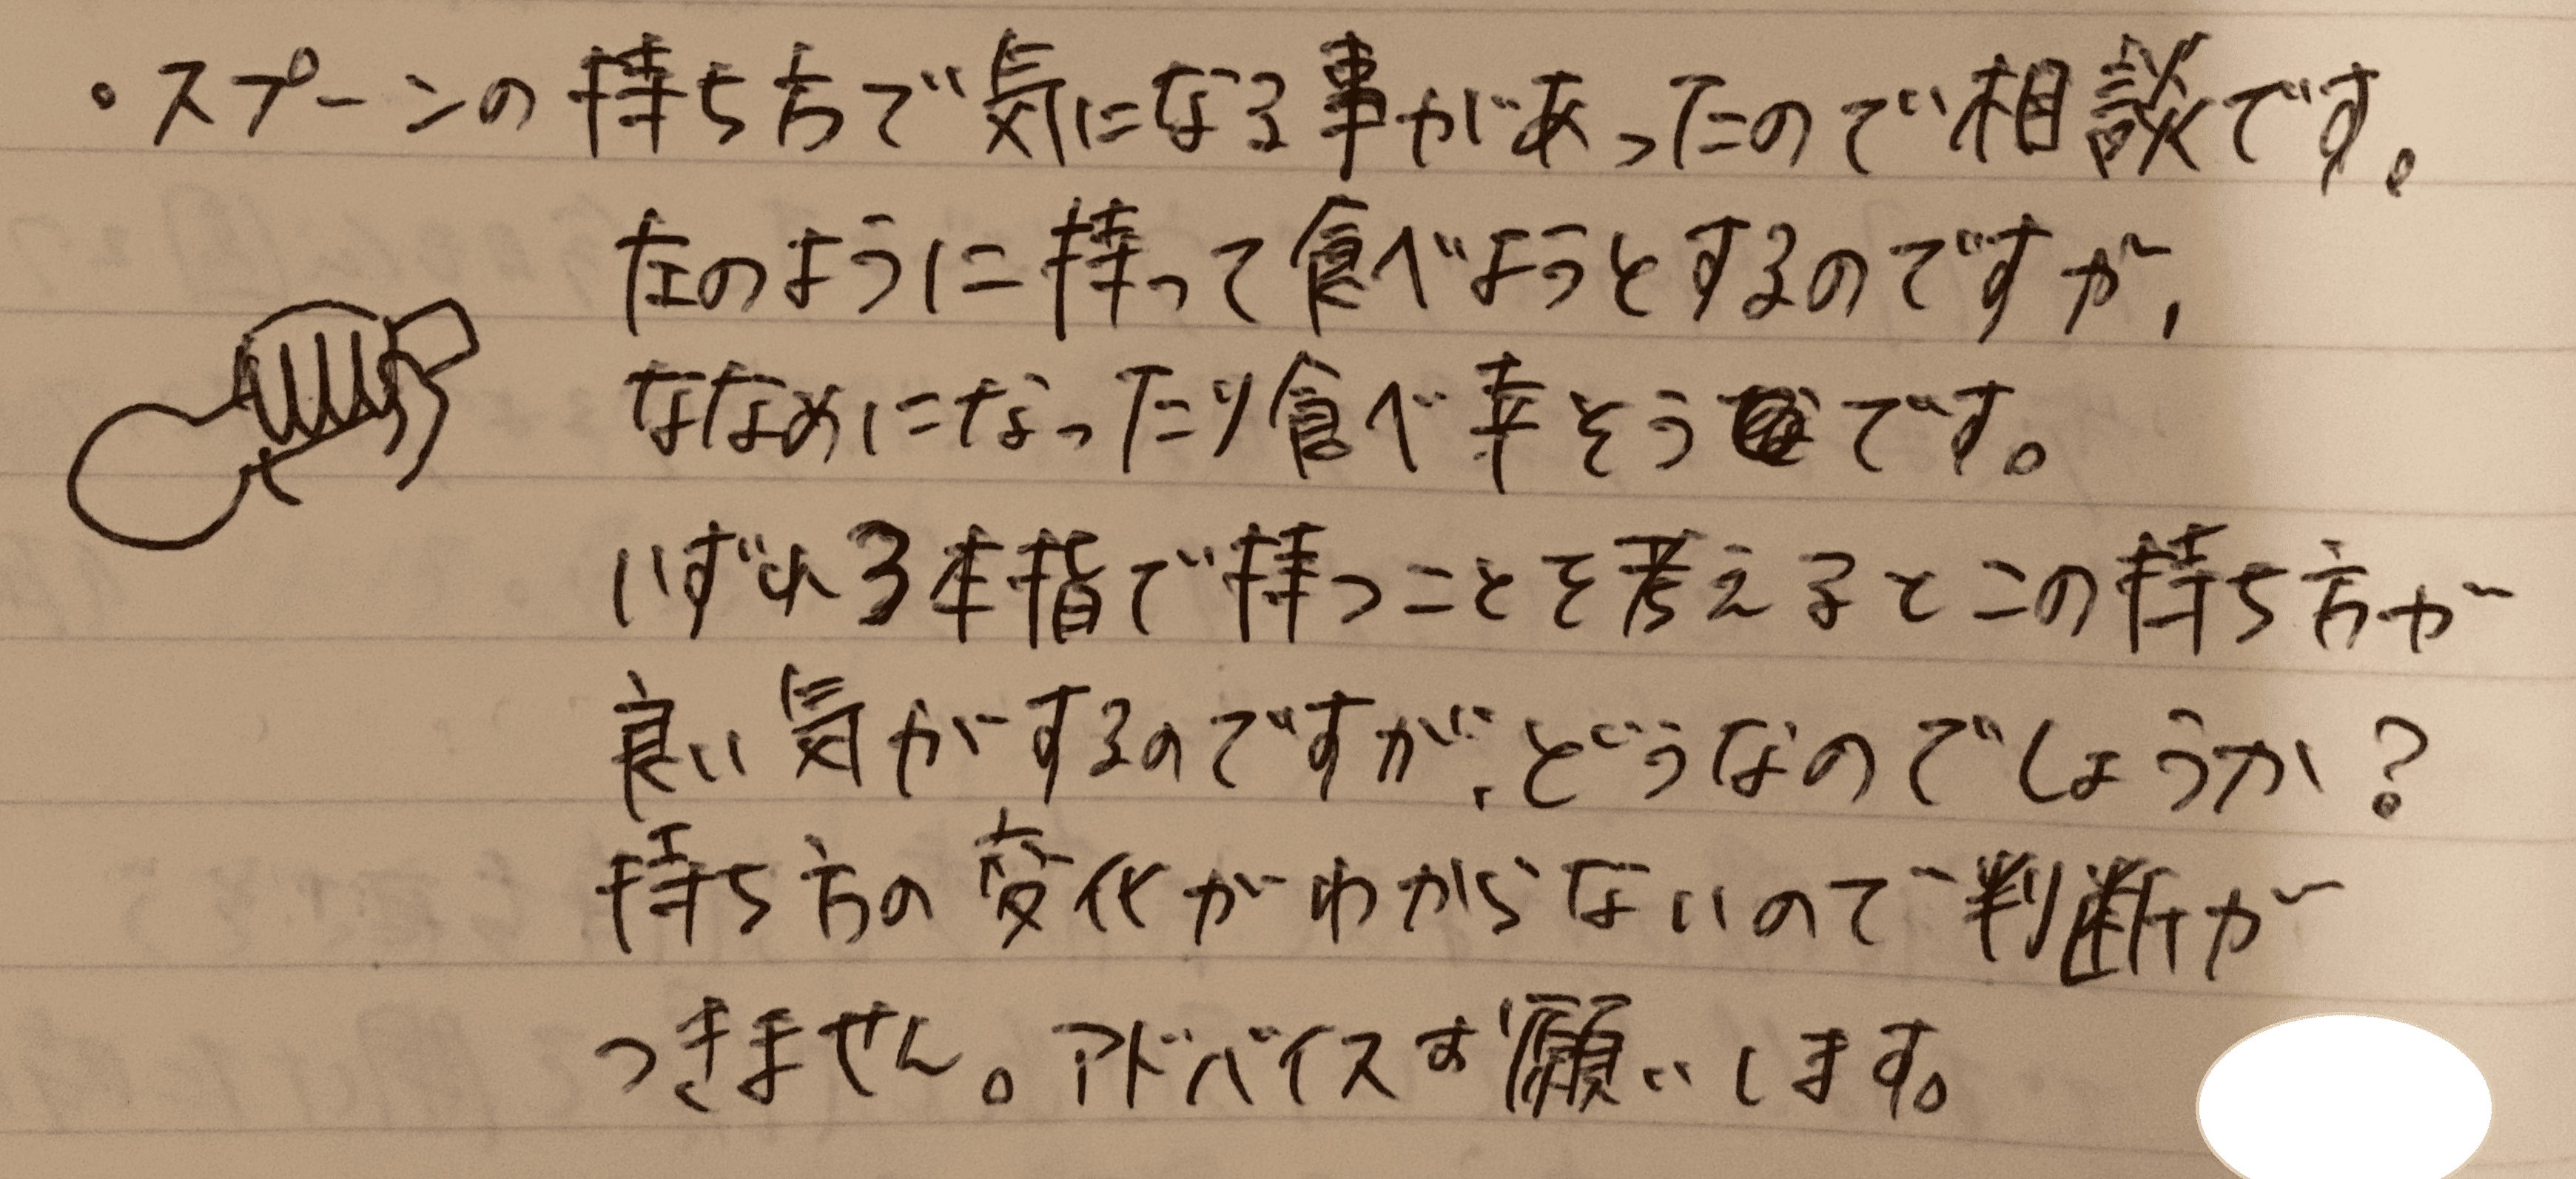 ・スプーンの持ち方で気になる事があったので相談です。
左のように持って食べようとするのですが、
ななめになったり食べ辛そうです。
いずれ3本指で持つことを考えるとこの持ち方が
良い気がするのですが、どうなのでしょうか?
持ち方の変化がわからないので判断が
つきません。アドバイスお願いします。